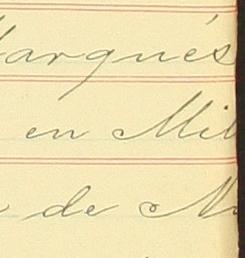 Marqués
en Mil
de M